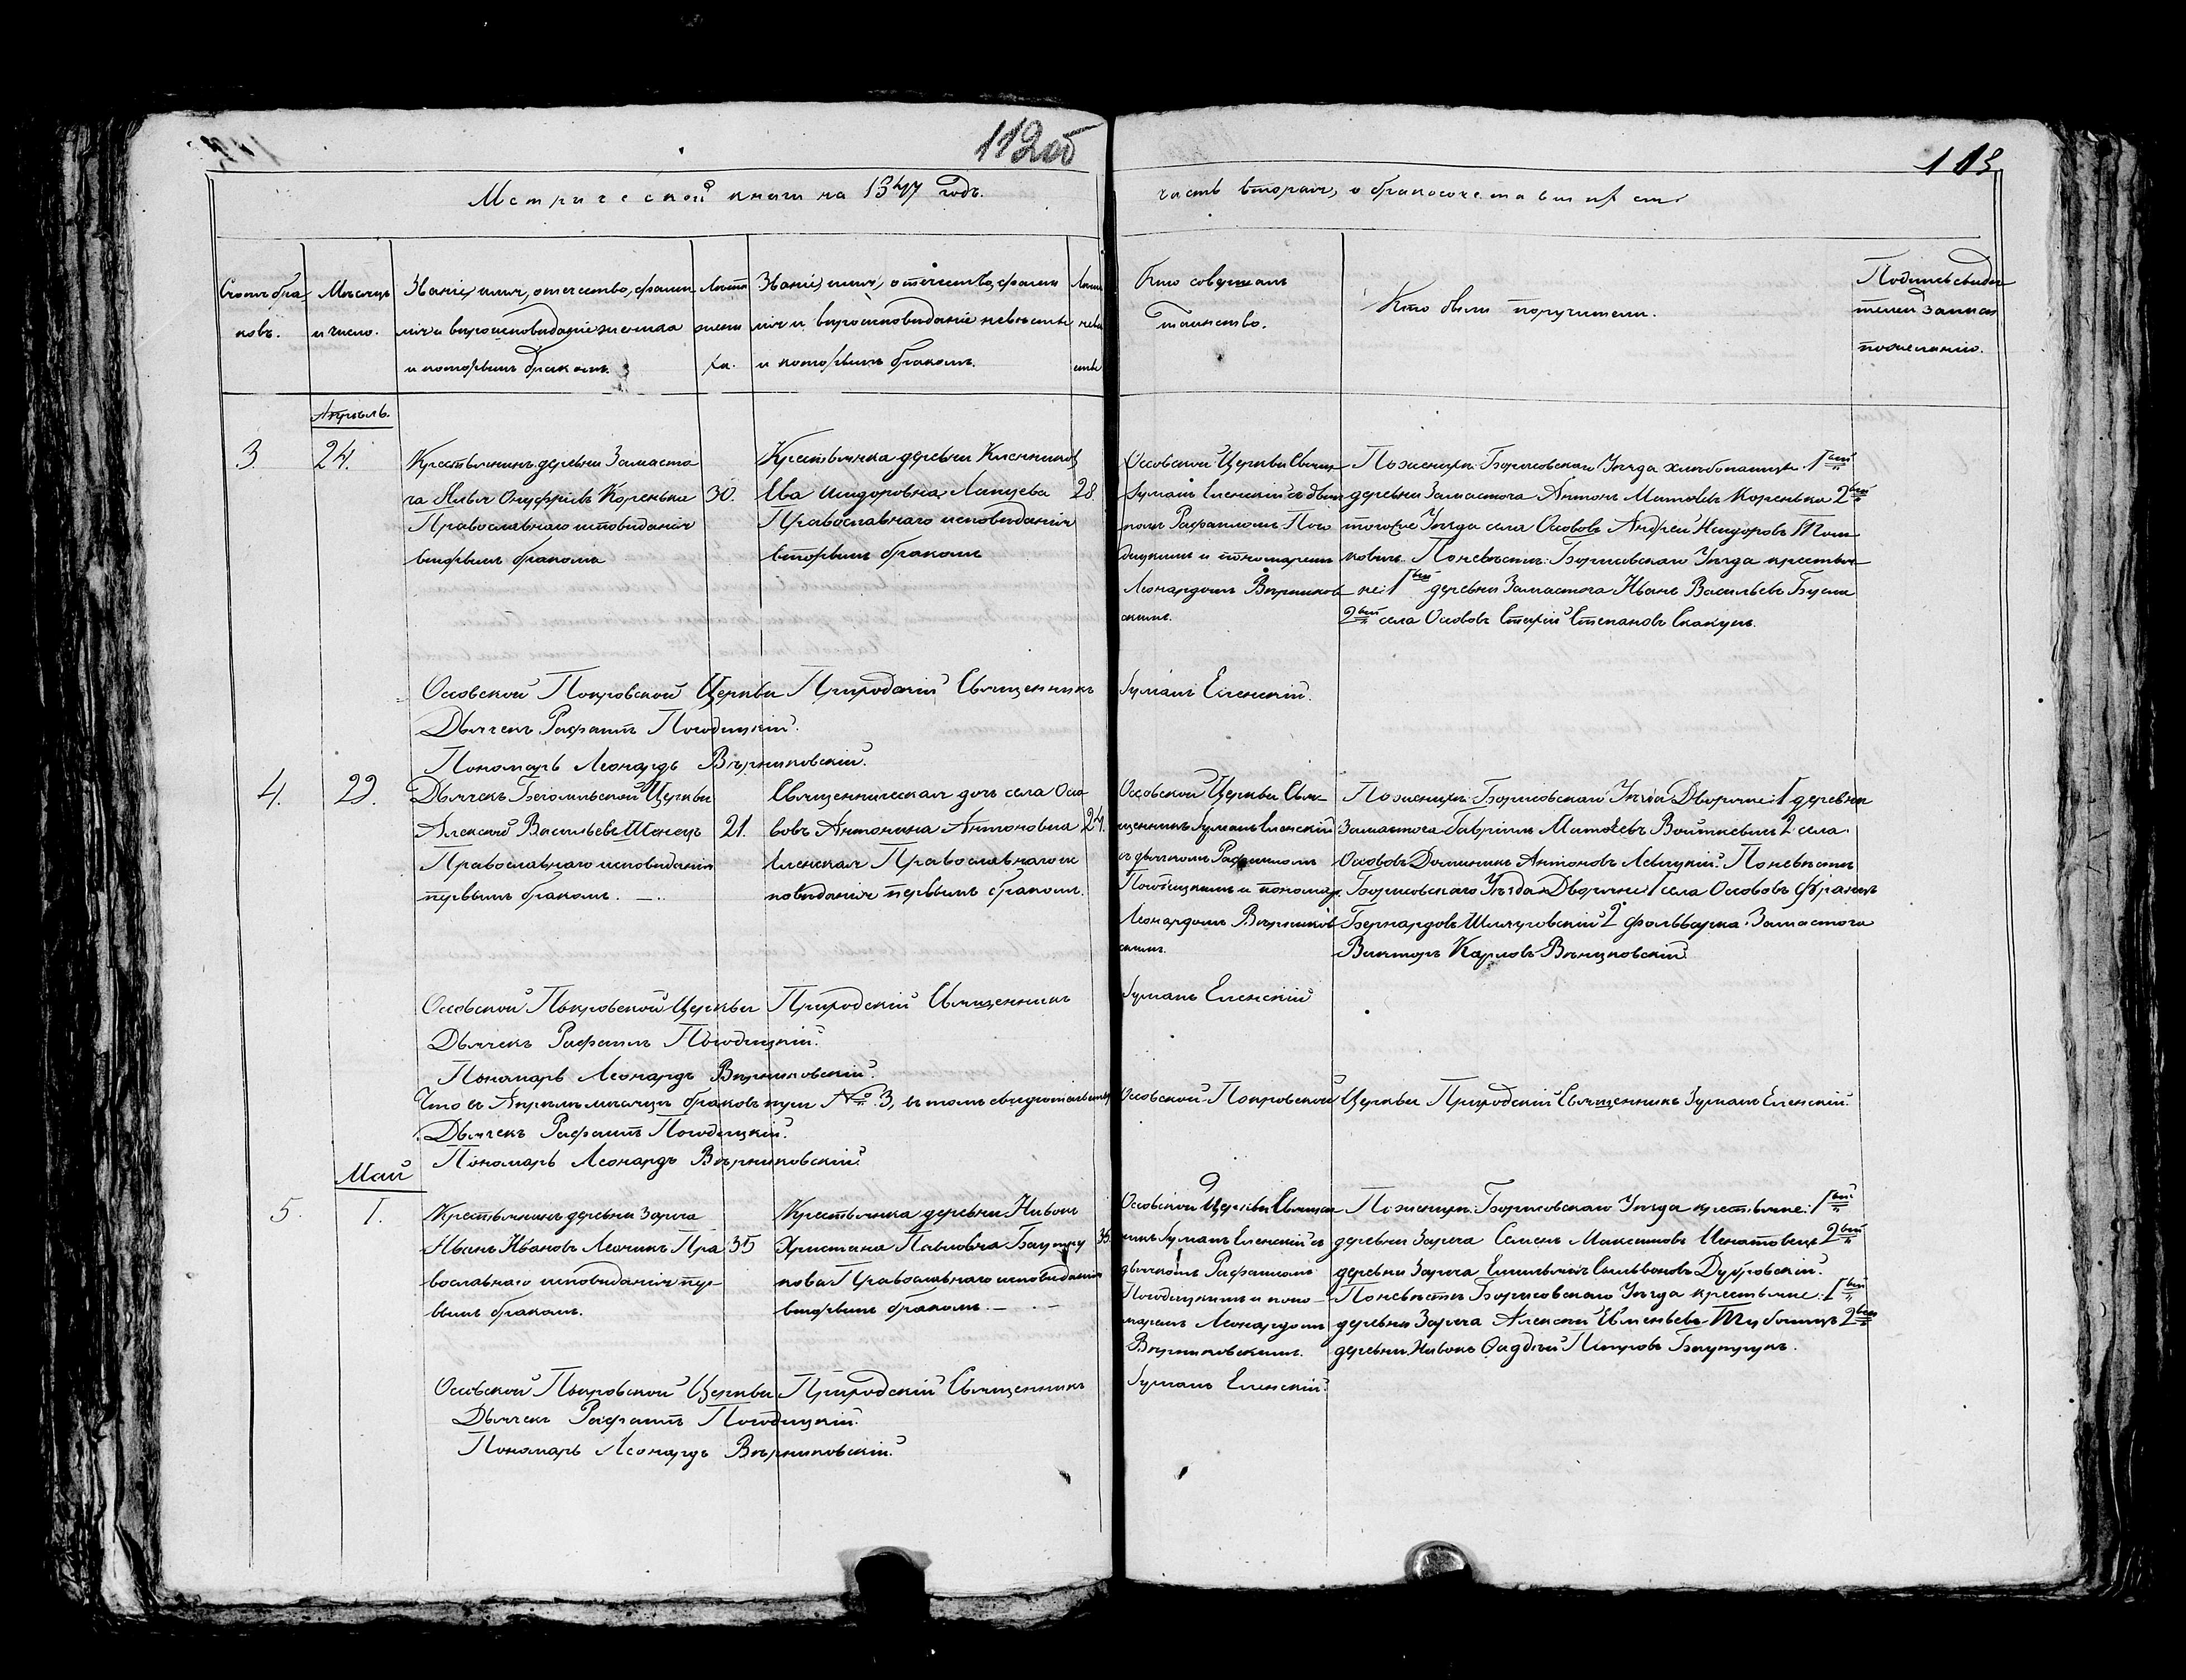 112об
113
Метрической книги на 1847 годъ.
часть вторая, о бракосочетавшихся
Счетъ бра
ковъ.
Мѣсяцъ
и число.
Званіе, имя, отечество, фами
лія и вѣроисповѣданіе жениха
и которымъ бракомъ.
Лѣта
жени
ха.
Званіе, имя, отечество, фами
лія и вѣроисповѣданіе невѣсты
и которымъ бракомъ.
Лѣта
невѣ
сты
Кто совершалъ
таинство.
Кто были поручители.
Подпись свидѣ
телей записи
по желанію.
Апрѣль.
3.
24.
Крестьянинъ деревни Замосто
ча Илья Онуфріевъ Коренько
Православнаго исповѣданія
вторымъ бракомъ
30.
Крестьянка деревни
Ева Исидоровна Лапцева
Православнаго исповѣданія
вторымъ бракомъ
28
Оссовской Церкви Свящ
Еленскій съ дьяч
комъ Рафаиломъ Пого
дицкимъ и пономаремъ
Леонардомъ Вѣрников
скимъ.
По женихѣ: Борисовскаго Уѣзда хлѣбопашцы: 1вый
деревни Замосточа Антонъ Матѳеевъ Коренько 2вой
того же Уѣзда села Оссовъ Андрей Исидоровъ
По невѣстѣ: Борисовскаго Уѣзда крестья
не: 1вый деревни Замосточа Иванъ Васильевъ
2вой села Оссовъ Степановъ Скакунъ.
Оссовской Покровской Церкви Приходскій Священникъ
Еленскій.
Дьячекъ Рафаилъ Погодицкій.
Пономарь Леонардъ Вѣрниковскій.
4.
29.
Дьячекъ Бегомльской Церкви
Алексѣй Васильевъ Шенецъ
Православнаго исповѣданія
первымъ бракомъ. —..
21.
Священническая дочь села Осо
вовъ Антонина Антоновна
Еленская Православнаго ис
повѣданія первымъ бракомъ.
24.
Оссовской Церкви Свя-
щенникъ Еленскій
съ дьячкомъ Рафаиломъ
Погодицкимъ и пономар.
Леонардомъ Вѣрников
скимъ.
По женихѣ: Борисовскаго Уѣзда Дворяне: 1 деревни
Замосточа Гавріилъ Матѳеевъ Войткевичъ 2 села
Оссовъ Доминикъ Антоновъ Левицкій. По невѣстѣ
Борисовскаго Уѣзда Дворяне: 1 села Оссововъ Францъ
Бернардовъ 2 фольварка Замосточа
Викторъ Карловъ
Оссовской Покровской Церкви Приходскій Священникъ
Еленскій
Дьячекъ Рафаилъ Погодицкій.
Пономарь Леонардъ Вѣрниковскій.
Что въ Апрѣлѣ мѣсяцѣ браковъ № 3, въ томъ свидѣтельствуемъ
Оссовской Покровской Церкви Приходскій Священникъ Еленскій.
Дьячекъ Рафаилъ Погодицкій.
Пономарь Леонардъ Вѣрниковскій.
Май
5.
1.
Крестьянинъ деревни Зарѣча
Иванъ Ивановъ Леоникъ Пра
вославнаго исповѣданія пер
вымъ бракомъ.
35
Крестьянка деревни Нивокъ
Христина Павловна
кова Православнаго исповѣданія
вторымъ бракомъ. —
35.
Оссовской Церкви Священ
никъ Еленскій съ
дьячкомъ Рафаиломъ
Погодицкимъ и поно-
маремъ Леонардомъ
Вѣрниковскимъ.
По женихѣ: Борисовскаго Уѣзда крестьяне: 1вый
деревни Зарѣча Семенъ Максимовъ Игнатовецъ 2вой
деревни Зарѣча Емельянъ Сильвановъ Дубровскій.
По невѣстѣ Борисовскаго Уѣзда крестьяне: 1вый
деревни Зарѣча Алексѣй 2вой
деревни Нивокъ Петровъ
Оссовской Покровской Церкви Приходскій Священникъ
Еленскій.
Дьячекъ Рафаилъ Погодицкій.
Пономарь Леонардъ Вѣрниковскій.